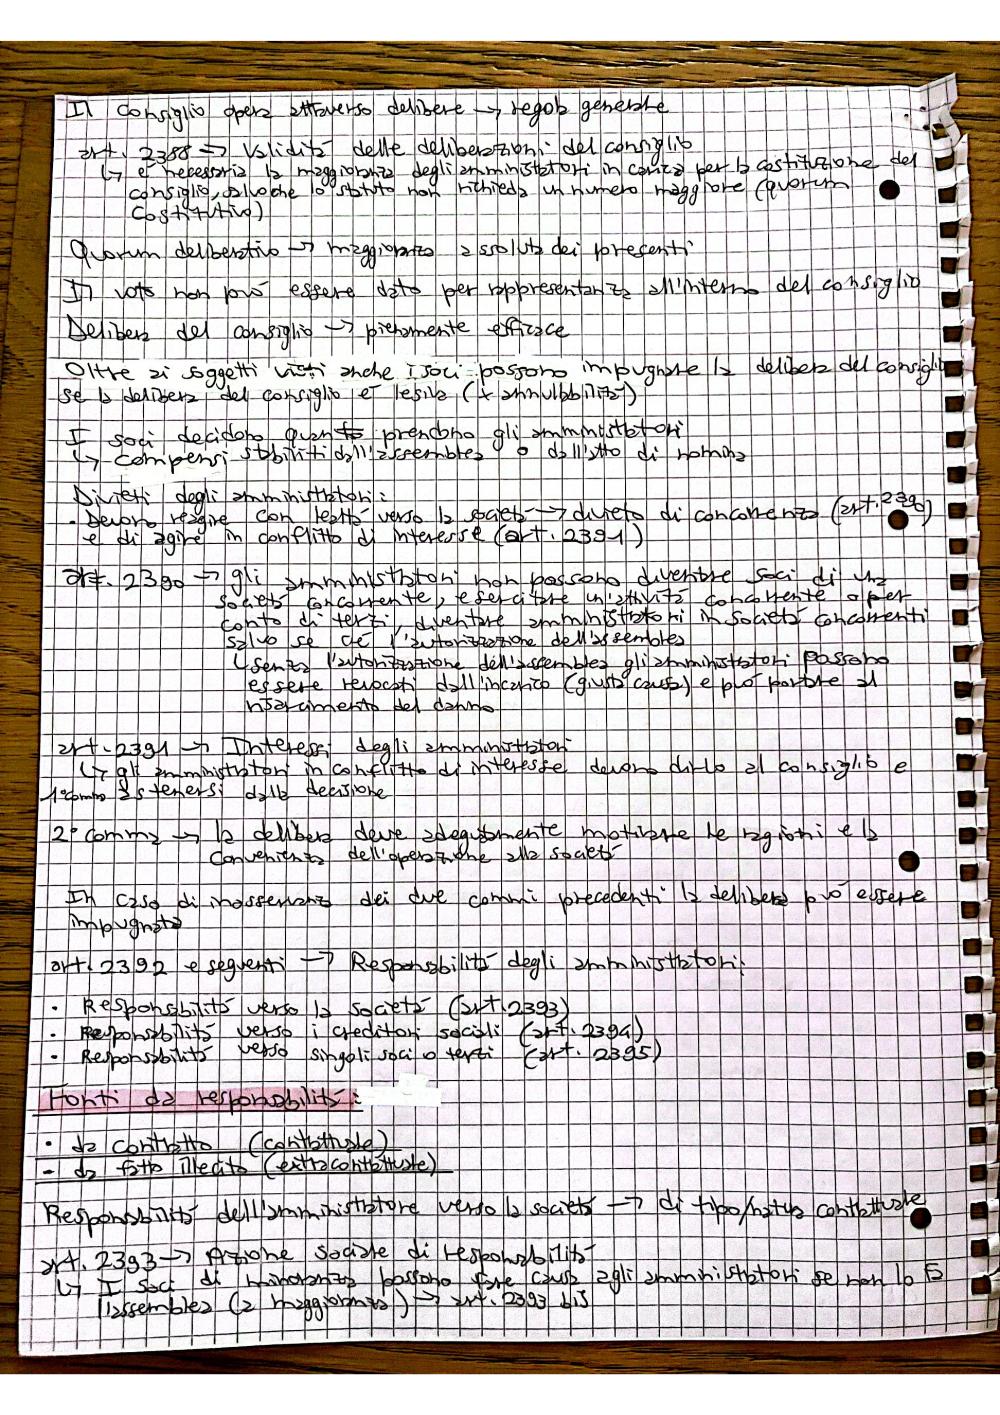 Il consiglio opera attraverso delibere → regola generale
art. 2388 → Validità delle deliberazioni del consiglio
↳ è necessaria la maggioranza degli amministratori in carica per la costituzione del
consiglio, salvo che lo statuto non richieda un numero maggiore (quorum
costitutivo)
Quorum deliberativo → maggioranza assoluta dei presenti
Il voto non può essere dato per rappresentanza all'interno del consiglio
Delibera del consiglio → pienamente efficace
Oltre ai soggetti visti anche i soci possono impugnare la delibera del consiglio
se la delibera del consiglio è lesiva (x annullabilità)
I soci decidono quanto prendono gli amministratori
↳ compensi stabiliti dall'assemblea o dall'atto di nomina
Divieti degli amministratori:
• Devono reagire con lealtà verso la società → divieto di concorrenza (art. 2390)
e di agire in conflitto di interesse (art. 2391)
art. 2390 → gli amministratori non possono diventare soci di una
società concorrente, esercitare un'attività concorrente o per
conto di terzi, diventare amministratori in società concorrenti
salvo se c'è l'autorizzazione dell'assemblea
↳ senza l'autorizzazione dell'assemblea gli amministratori possono
essere revocati dall'incarico (giusta causa) e può portare al
risarcimento del danno
art. 2391 → Interessi degli amministratori
↳ gli amministratori in conflitto di interesse devono dirlo al consiglio e
1° comma astenersi dalla decisione
2° comma → la delibera deve adeguatamente motivare le ragioni e la
convenienza dell'operazione alla società
In caso di inosservanza dei due commi precedenti la delibera può essere
impugnata
art. 2392 e seguenti → Responsabilità degli amministratori:
• Responsabilità verso la società (art. 2393)
• Responsabilità verso i creditori sociali (art. 2394)
• Responsabilità verso singoli soci o terzi (art. 2395)
Fonti da responsabilità:
• da contratto (contrattuale)
- da fatto illecito (extracontrattuale)
Responsabilità dell'amministratore verso la società → di tipo/natura contrattuale
art. 2393 → Azione sociale di responsabilità
↳ I soci di minoranza possono fare causa agli amministratori se non lo fa
l'assemblea (a maggioranza) → art. 2393 bis